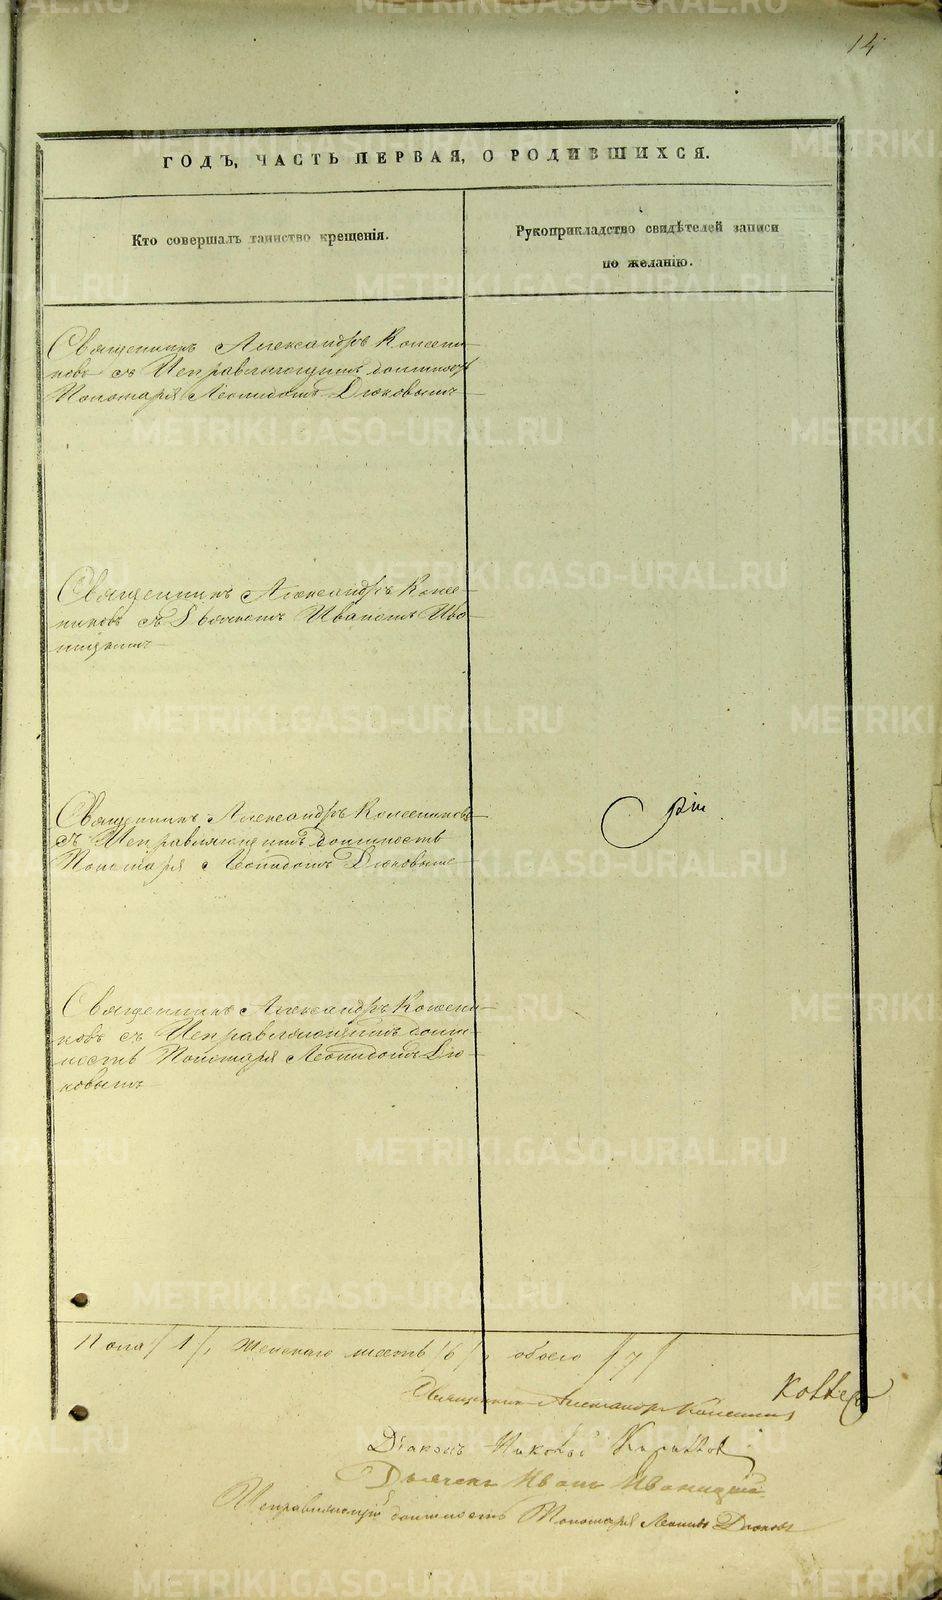 14
ГОДЪ, ЧАСТЬ ПЕРВАЯ, О РОДИВШИХСЯ.
Кто совершалъ таинство крещенія.
Рукоприкладство свидѣтелей записи
по желанію.
Священникъ Александръ Колесни-
ковъ съ Исправляющимъ должность
Пономаря Леонидомъ Дюковымъ
Священникъ Александръ Колес-
никовъ съ Дьячкомъ Иваномъ Ива-
ницкимъ
Священникъ Александръ Колесниковъ
съ Исправляющимъ должность
Пономаря Леонидомъ Дюковымъ
Священникъ Александръ Колесни-
ковъ съ Исправляющимъ долж
ность Пономаря Леонидомъ Дю-
ковымъ
Пола /1/, женскаго шесть /6/, обоего /7/
Священникъ Александръ
Діаконъ Николай
Дьячекъ Иванъ Иваницкій
Исправляющій должность Пономаря Леонидъ Дюковъ
METRIKI.GASO-URAL.RU